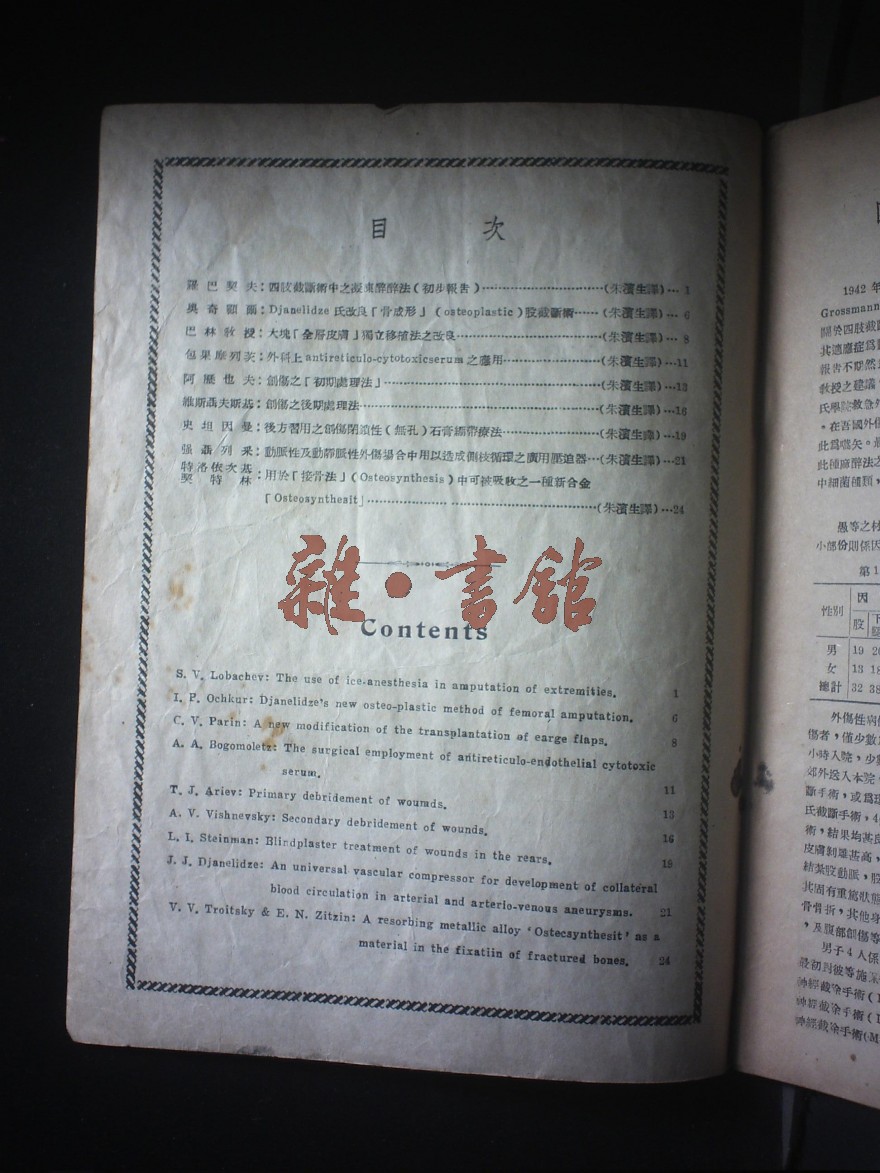 目次
羅巴契夫：四肢截斷術中之凝凍醉醉法（初步報告）……（朱濱生譯）…1
奧奇顧爾：Djanelidze氏改良「骨成形」（osteoplastic）股截斷術……（朱濱生譯）…6
巴林敎授：大塊「全層皮膚」獨立移植法之改良……（朱濱生譯）…8
包果摩列茨：外科上antireticulo-cytotoxicserum之應用……（朱濱生譯）…11
阿歷也夫：創傷之「初期處理法」……（朱濱生譯）…13
維斯聶夫斯基：創傷之後期處理法……（朱濱生譯）…16
史坦因曼：後方習用之創傷閉鎖性（無孔）石膏繃帶療法……（朱濱生譯）…19
張聶列采：動脈性及動靜脈性外傷場合中用以造成側枝循環之廣用壓迫器…（朱濱生譯）…21
特洛依次基
契特林：用於「接骨法」（Osteosynthesis）中可被吸收之一種新合金
「Osteosynthesit」……（朱濱生譯）…24
雜·書舘
Contents
S. V. Lobachev: The use of ice-anesthesia in amputation of extremities. 1
I. P. Ochkur: Djanelidze's new osteo-plastic method of femoral amputation. 6
C. V. Parin: A new modification of the transplantation of earge flaps. 8
A. A. Bogomoletz: The surgical employment of antireticulo-endothelial cytotoxic
serum. 11
T. J. Ariev: Primary debridement of wounds. 13
A. V. Vishnevsky: Secondary debridement of wounds. 16
L. I. Steinman: Blindplaster treatment of wounds in the rears. 19
J. J. Djanelidze: An universal vascular compressor for development of collateral
blood circulation in arterial and arterio-venous aneurysms. 21
V. V. Troitsky & E. N. Zitzin: A resorbing metallic alloy 'Ostecsynthesit' as a
material in the fixatiin of fractured bones. 24
1942年
Grossmann
關於四肢截
其適應症爲
報吿不期然
敎授之建議
氏學院救急外
。在吾國外傷
此爲嚆矢。最
此種麻醉法之
中細菌種類，
愚等之材
小部份則係因
第1
性別 因
股 下
男 19 20
女 13 18
總計 32 38
外傷性病
傷者，僅少數
小時入院，少
郊外送入本院
斷手術，或爲
氏截斷手術，4
術，結果均甚良
皮膚剝離甚高，
結紮股動脈，股
其固有重篤狀態
骨骨折，其他身
，及腹部創傷等
男子4人係
最初對彼等施
神經截除手術（
神經截除手術（
神經截除手術（M